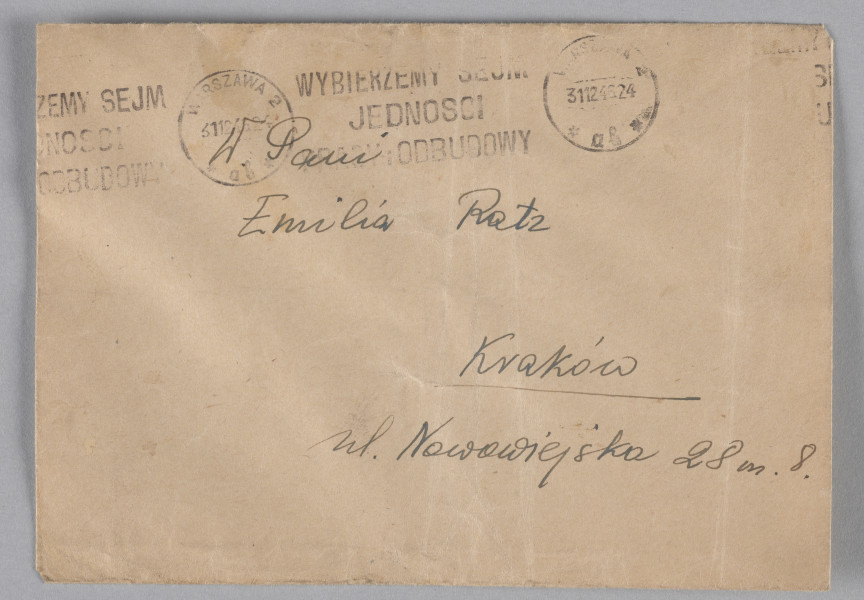 ZEMY SEJM
NOSCI
ODBUDOWY
WARSZAWA 2
311246.24
WYBIERZEMY SEJM
JEDNOSCI
PRACY i ODBUDOWY
WARSZAWA 2
311246.24
W Pani
Emilia Ratz
Kraków
ul. Nowowiejska 28 m. 8.